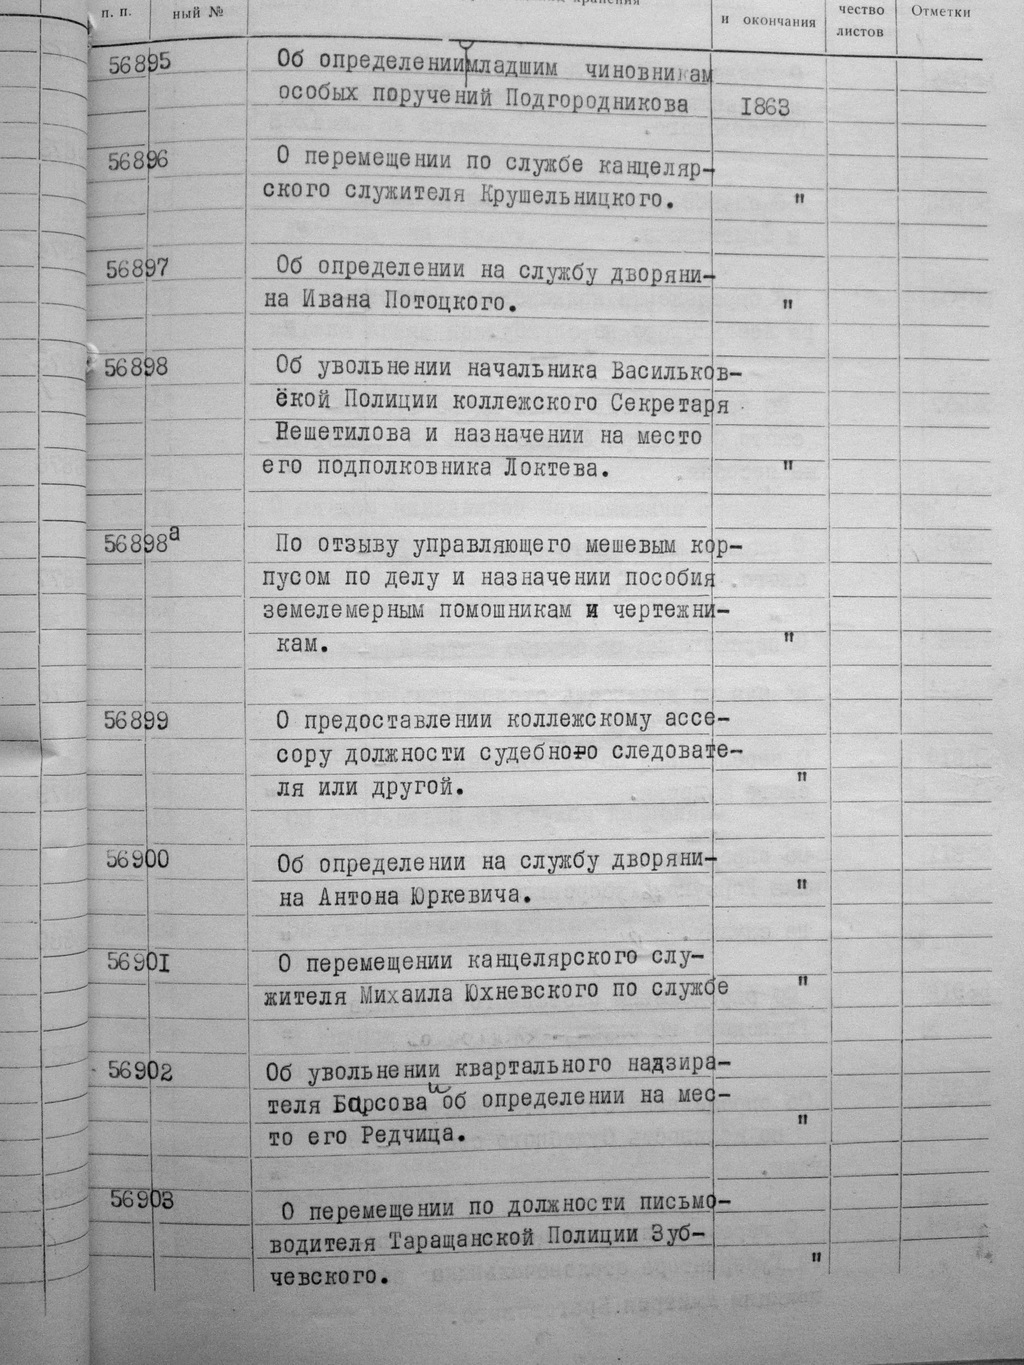 п. п.
ный №
хранения
и окончания
чество
листов
Отметки
56895 Об определении младшим чиновникам
особых поручений Подгородникова 1863
56896 О перемещении по службе канцеляр-
ского служителя Крушельницкого. "
56897 Об определении на службу дворяни-
на Ивана Потоцкого. "
56898 Об увольнении начальника Васильков-
ёкой Полиции коллежского Секретаря
Решетилова и назначении на место
его подполковника Локтева. "
56898а По отзыву управляющего мешевым кор-
пусом по делу и назначении пособия
земелемерным помошникам и чертежни-
кам. "
56899 О предоставлении коллежскому ассе-
сору должности судебного следовате-
ля или другой. "
56900 Об определении на службу дворяни-
на Антона Юркевича. "
56901 О перемещении канцелярского слу-
жителя Михаила Юхневского по службе "
56902 Об увольнении квартального надзира-
теля Барсова и об определении на мес-
то его Редчица. "
56903 О перемещении по должности письмо-
водителя Таращанской Полиции Зуб-
чевского. "